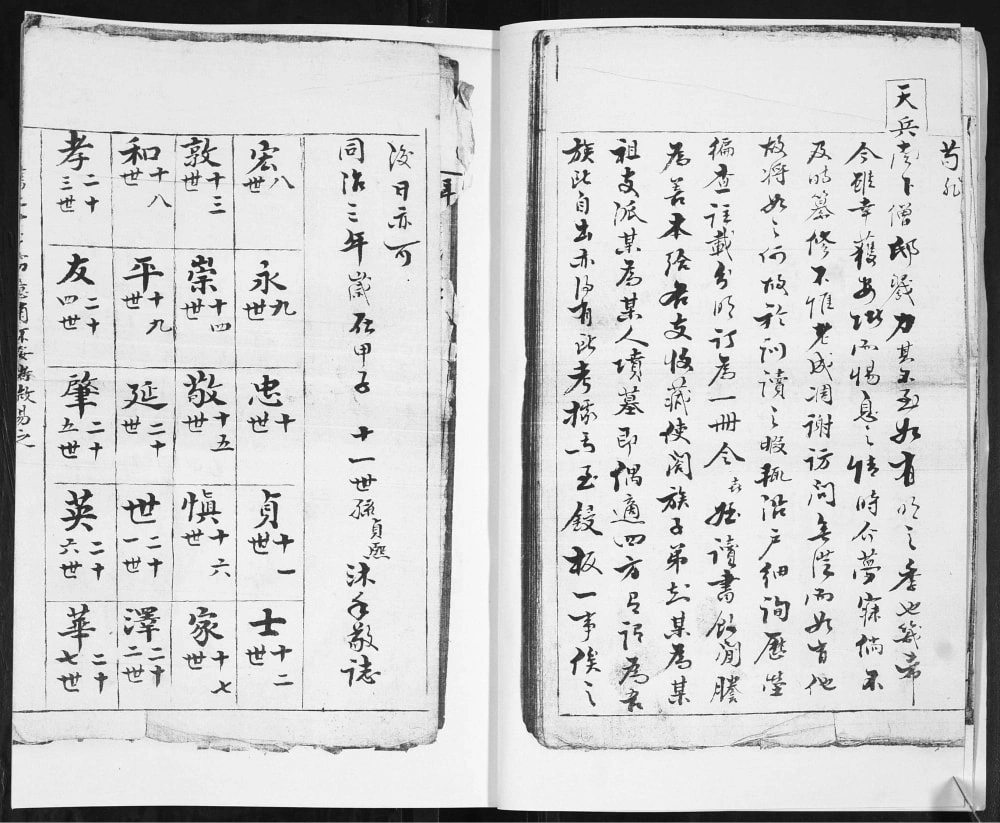 天兵南下僧邸戮力其不至如有明之季也幾希
今雖幸獲安堵而惕息之情時介夢寐倘不
及時纂修不惟老成凋謝訪問無從而如有他
故將如之何故於訓讀之暇輒沿戶細詢歷塋
徧查註載分明訂為一冊令 姪讀書館閒謄
為善本給各支收藏使闔族子弟知某為某
祖支派某為某人墳墓即偶適四方有認為吾
族比自出亦得有此考據焉至鋟板一事俟之
後日亦可
同治三年歲在甲子 十一世孫貞熙沐手敬誌
宏八世 永九世 忠十世 貞十一世 士十二世
敦十三世 崇十四世 敬十五世 慎十六世 家十七世
和十八世 平十九世 延二十世 世二十一世 澤二十二世
孝二十三世 友二十四世 肇二十五世 英二十六世 華二十七世